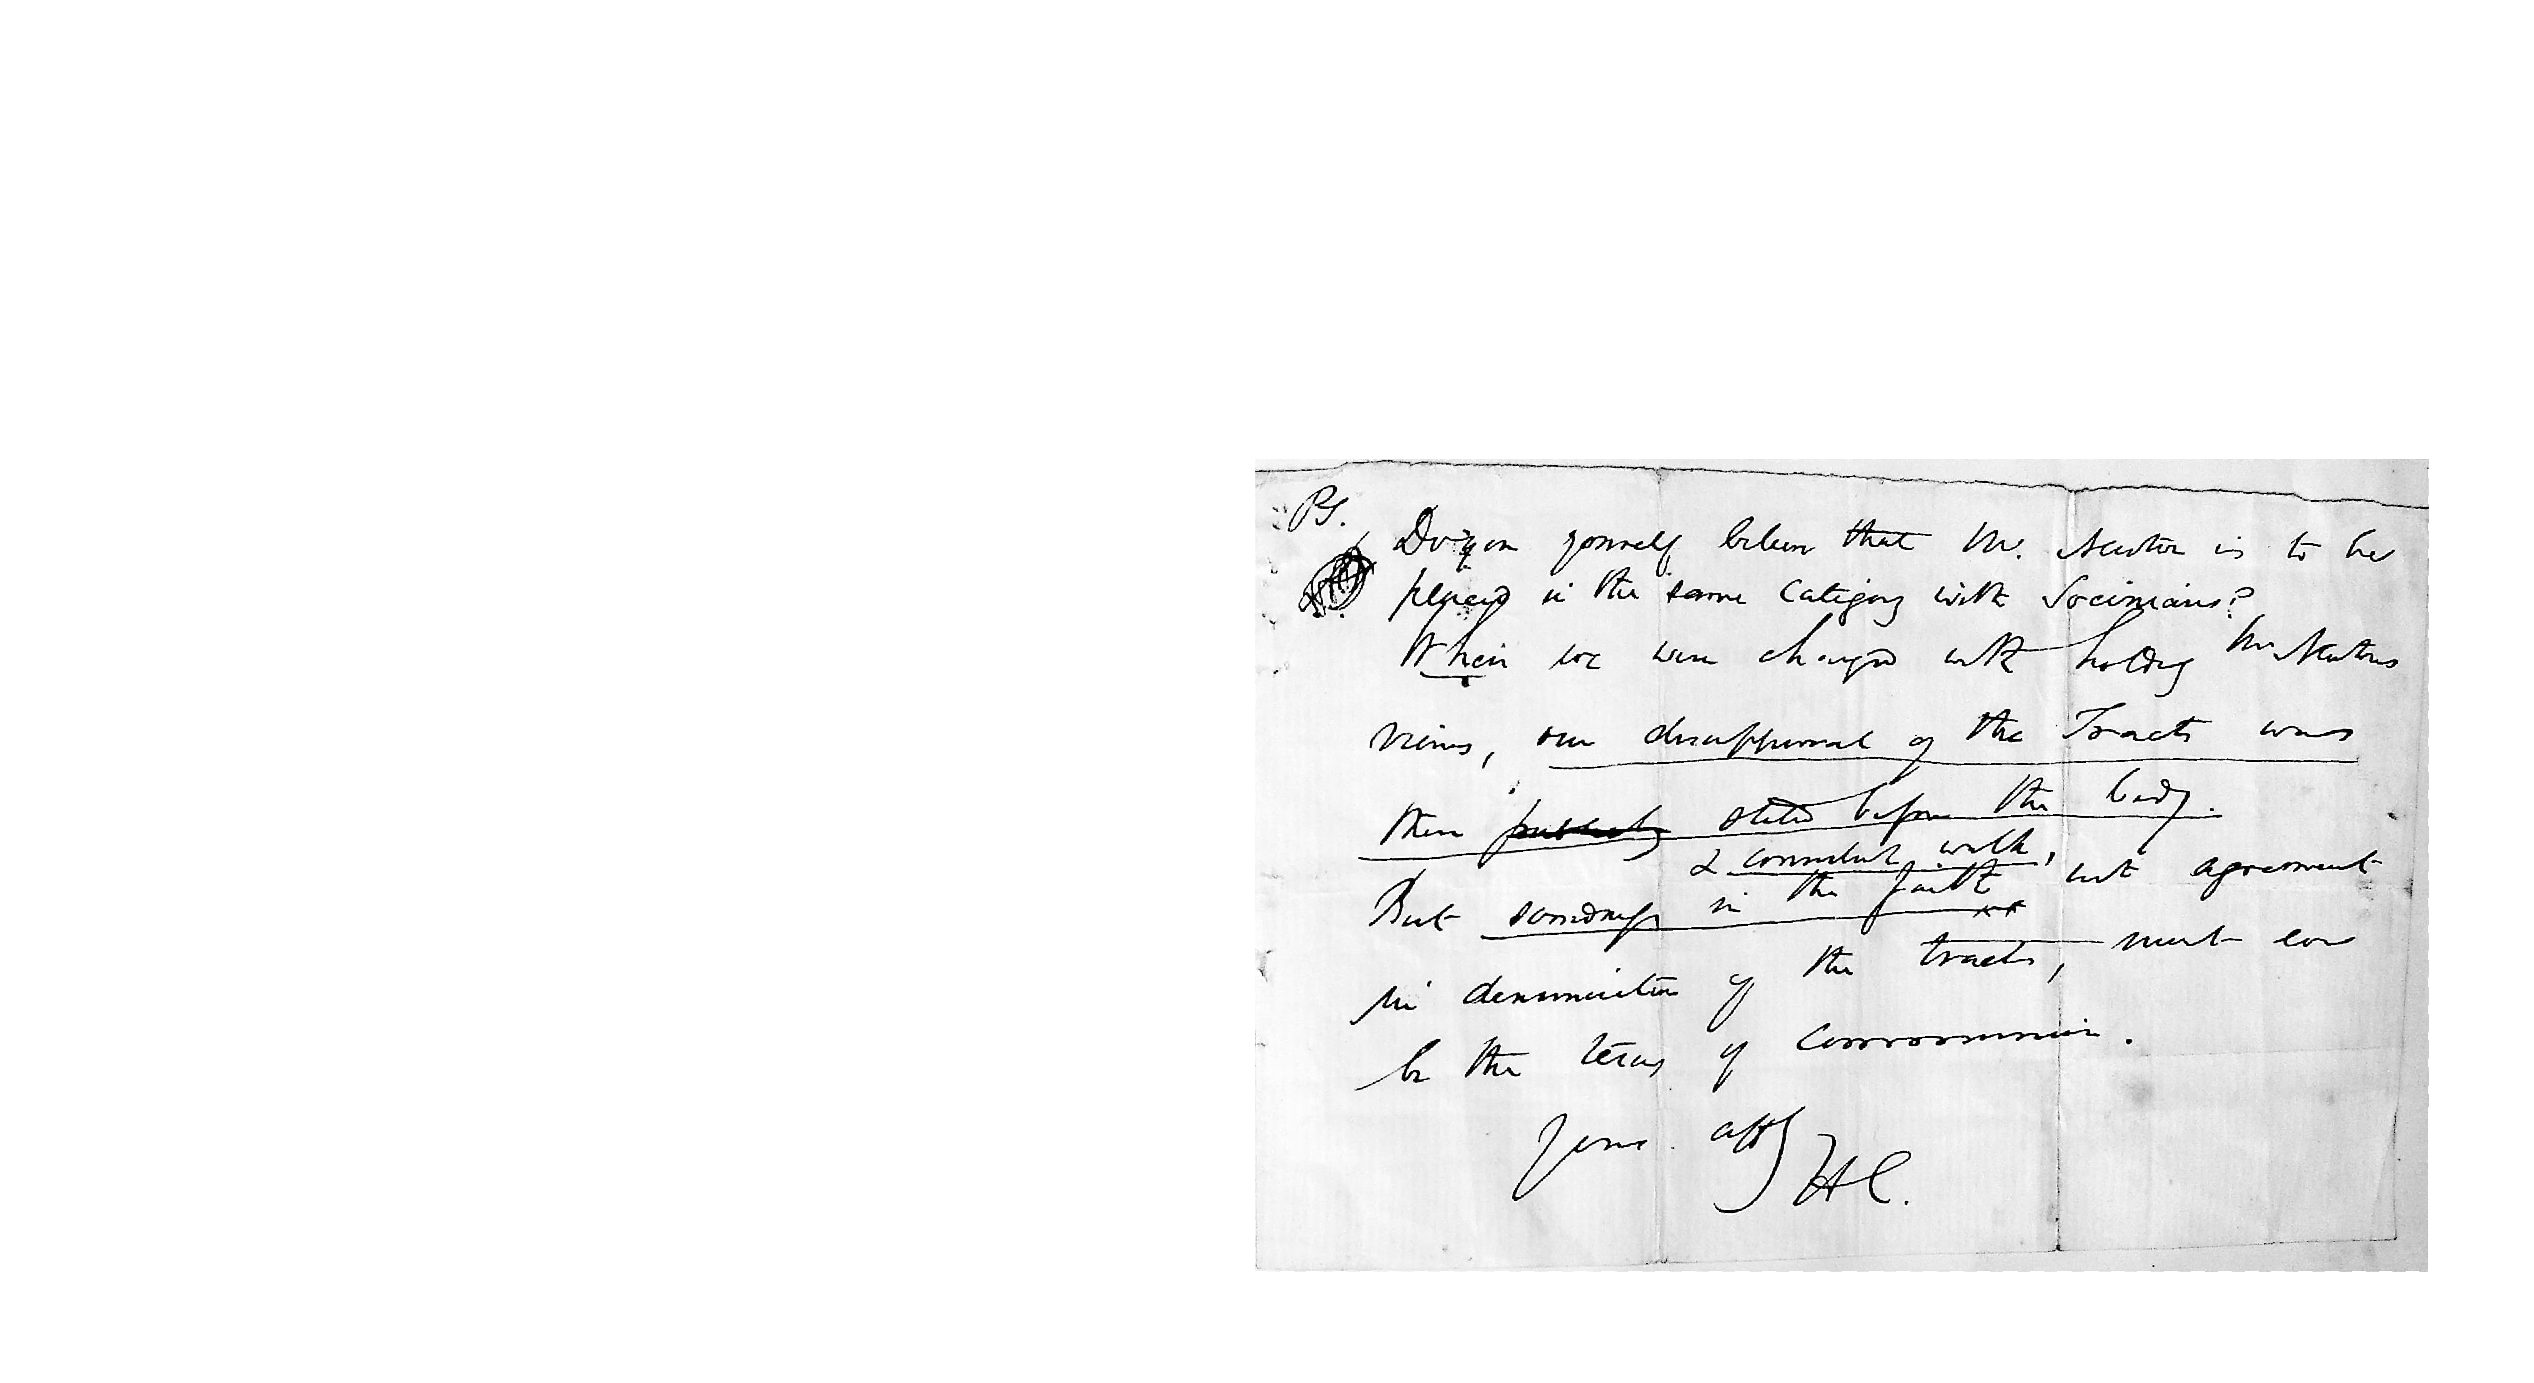 PS.
Do you yourself believe that Mr. Newton is to be
placed in the same category with Socinians?
When we were charged with holding Mr Newtons
views, our disapproval of the Tracts was
then publicly stated before the body.
& consistent walk,
But soundness in the faith not agreement
in denunciation of the tracts, must ever
be the terms of Communion.
Yours affly HC.